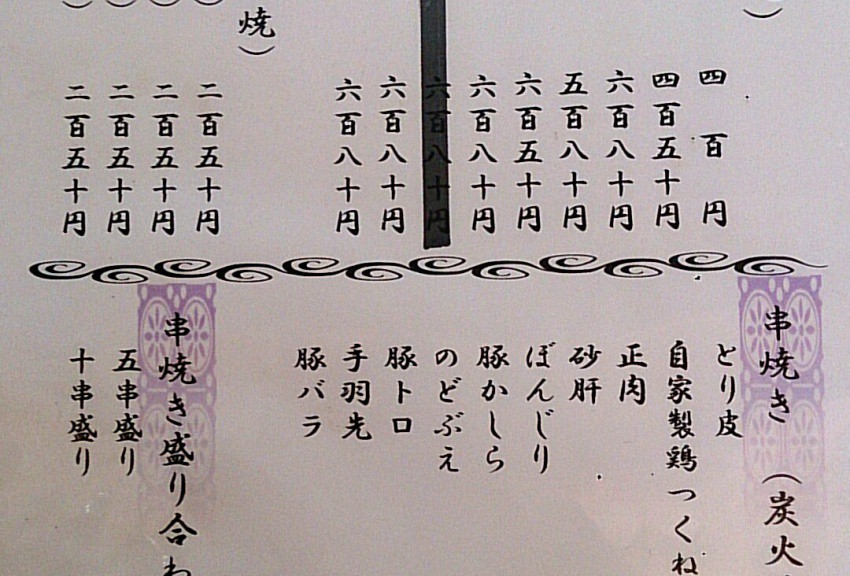 四百円
四百五十円
六百八十円
五百八十円
六百五十円
六百八十円
六百八十円
六百八十円
六百八十円
焼）
二百五十円
二百五十円
二百五十円
二百五十円
串焼き（炭火
とり皮
自家製鶏つくね
正肉
砂肝
ぼんじり
豚かしら
のどぶえ
豚トロ
手羽先
豚バラ
串焼き盛り合わ
五串盛り
十串盛り